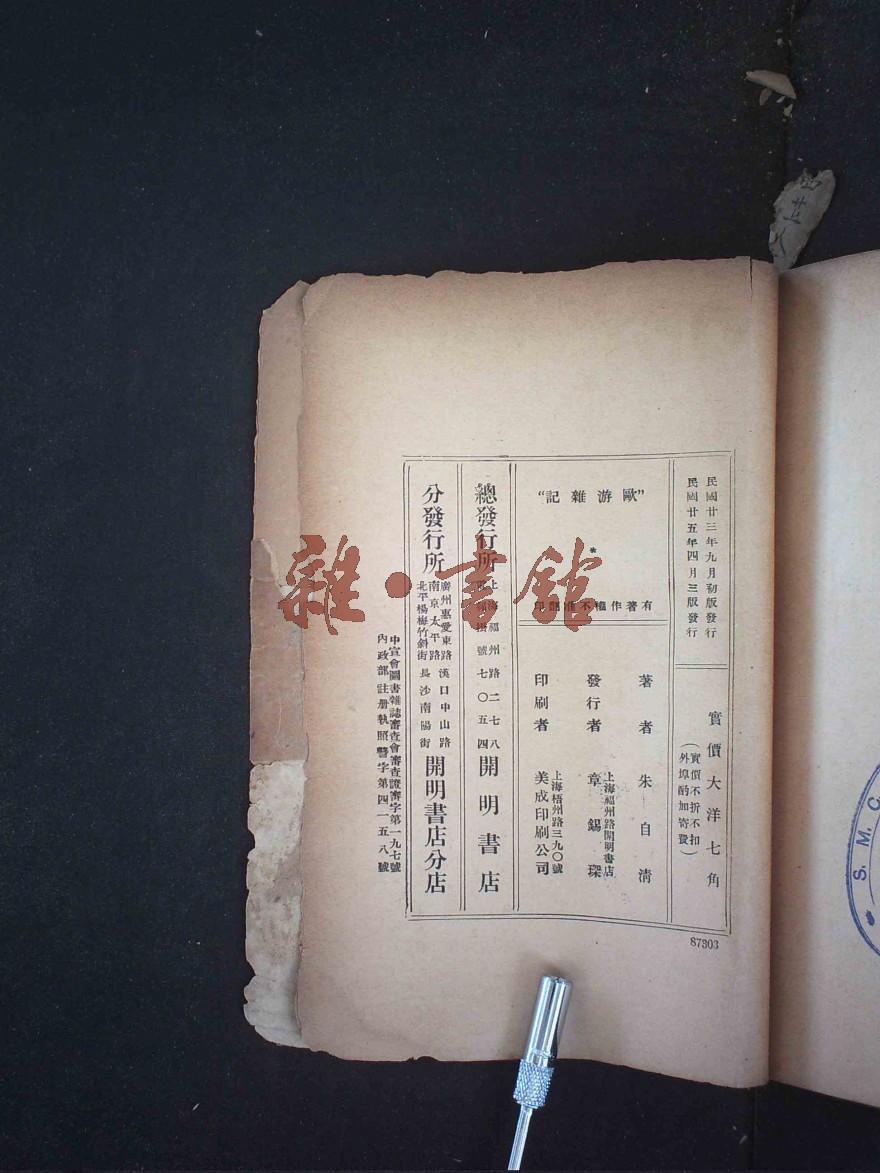 民國廿三年九月初版發行
民國廿五年四月三版發行
實價大洋七角
（實價不折不扣
外埠酌加寄費）
“歐游雜記”
*
有著作權不准翻印
著者 朱自清
發行者 上海福州路開明書店
章錫琛
印刷者 上海梧州路三九〇號
美成印刷公司
總發行所 上海福州路二七八
掛號七〇五四
開明書店
分發行所
廣州惠愛東路 漢口中山路
南京太平路
北平楊梅竹斜街 長沙南陽街
開明書店分店
中宣會圖書雜誌審查會審查證審字第一九七號
內政部註册執照警字第四一五八號
87303
雜·書館
S. M. C